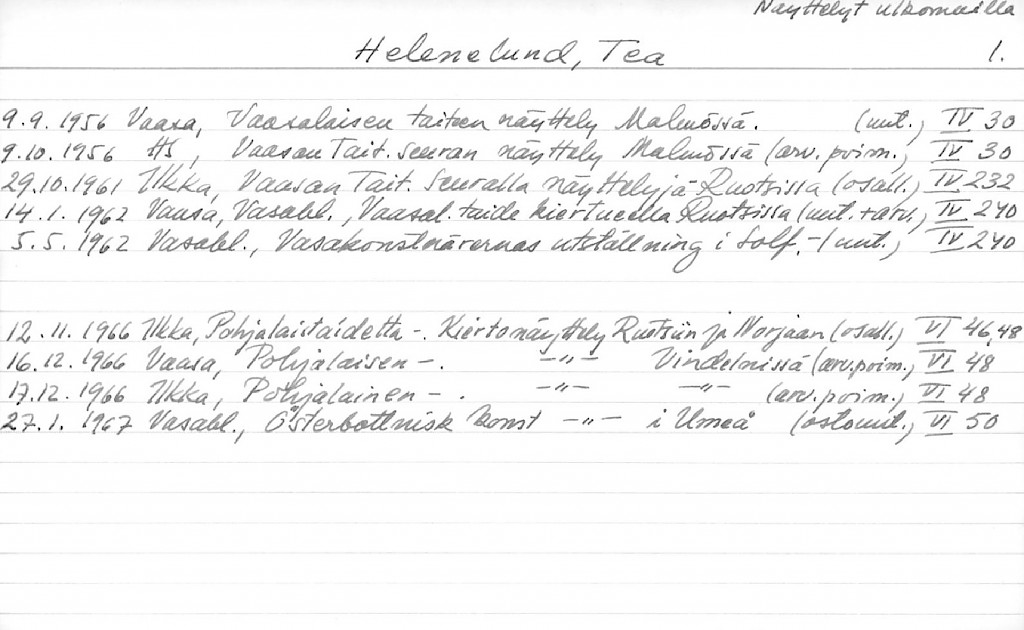 Näyttelyt ulkomailla
Helenelund, Tea 1.
9.9.1956 Vaasa, Vaasalaisen taiteen näyttely Malmössä. (uut.) IV 30
9.10.1956 HS, Vaasan Tait. seuran näyttely Malmössä (arv. poim.) IV 30
29.10.1961 Ilkka, Vaasan Tait. Seuralla näyttelyjä Ruotsissa (osall.) IV 232
14.1.1962 Vaasa, Vasabl., Vaasal. taide kiertueella Ruotsissa (uut. + arv.) IV 240
5.5.1962 Vasabl., Vasakonstnärernas utställning i Solf. - (uut.) IV 240
12.11.1966 Ilkka, Pohjalaistaidetta -. Kiertonäyttely Ruotsiin ja Norjaan (osall.) VI 46,48
16.12.1966 Vaasa, Pohjalaisen -. -"- Vindelnissä (arv.poim.) VI 48
17.12.1966 Ilkka, Pohjalainen -. -"- -"- (arv.poim.) VI 48
27.1.1967 Vasabl., Österbottnisk konst -"- i Umeå (ostouut.) VI 50